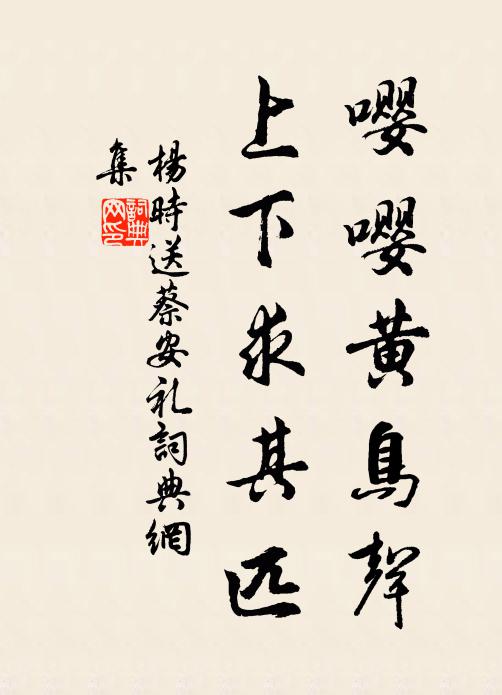 嚶嚶黃鳥聲
上下求其匹
楊時送蔡安礼詞典網
集
詞典網印